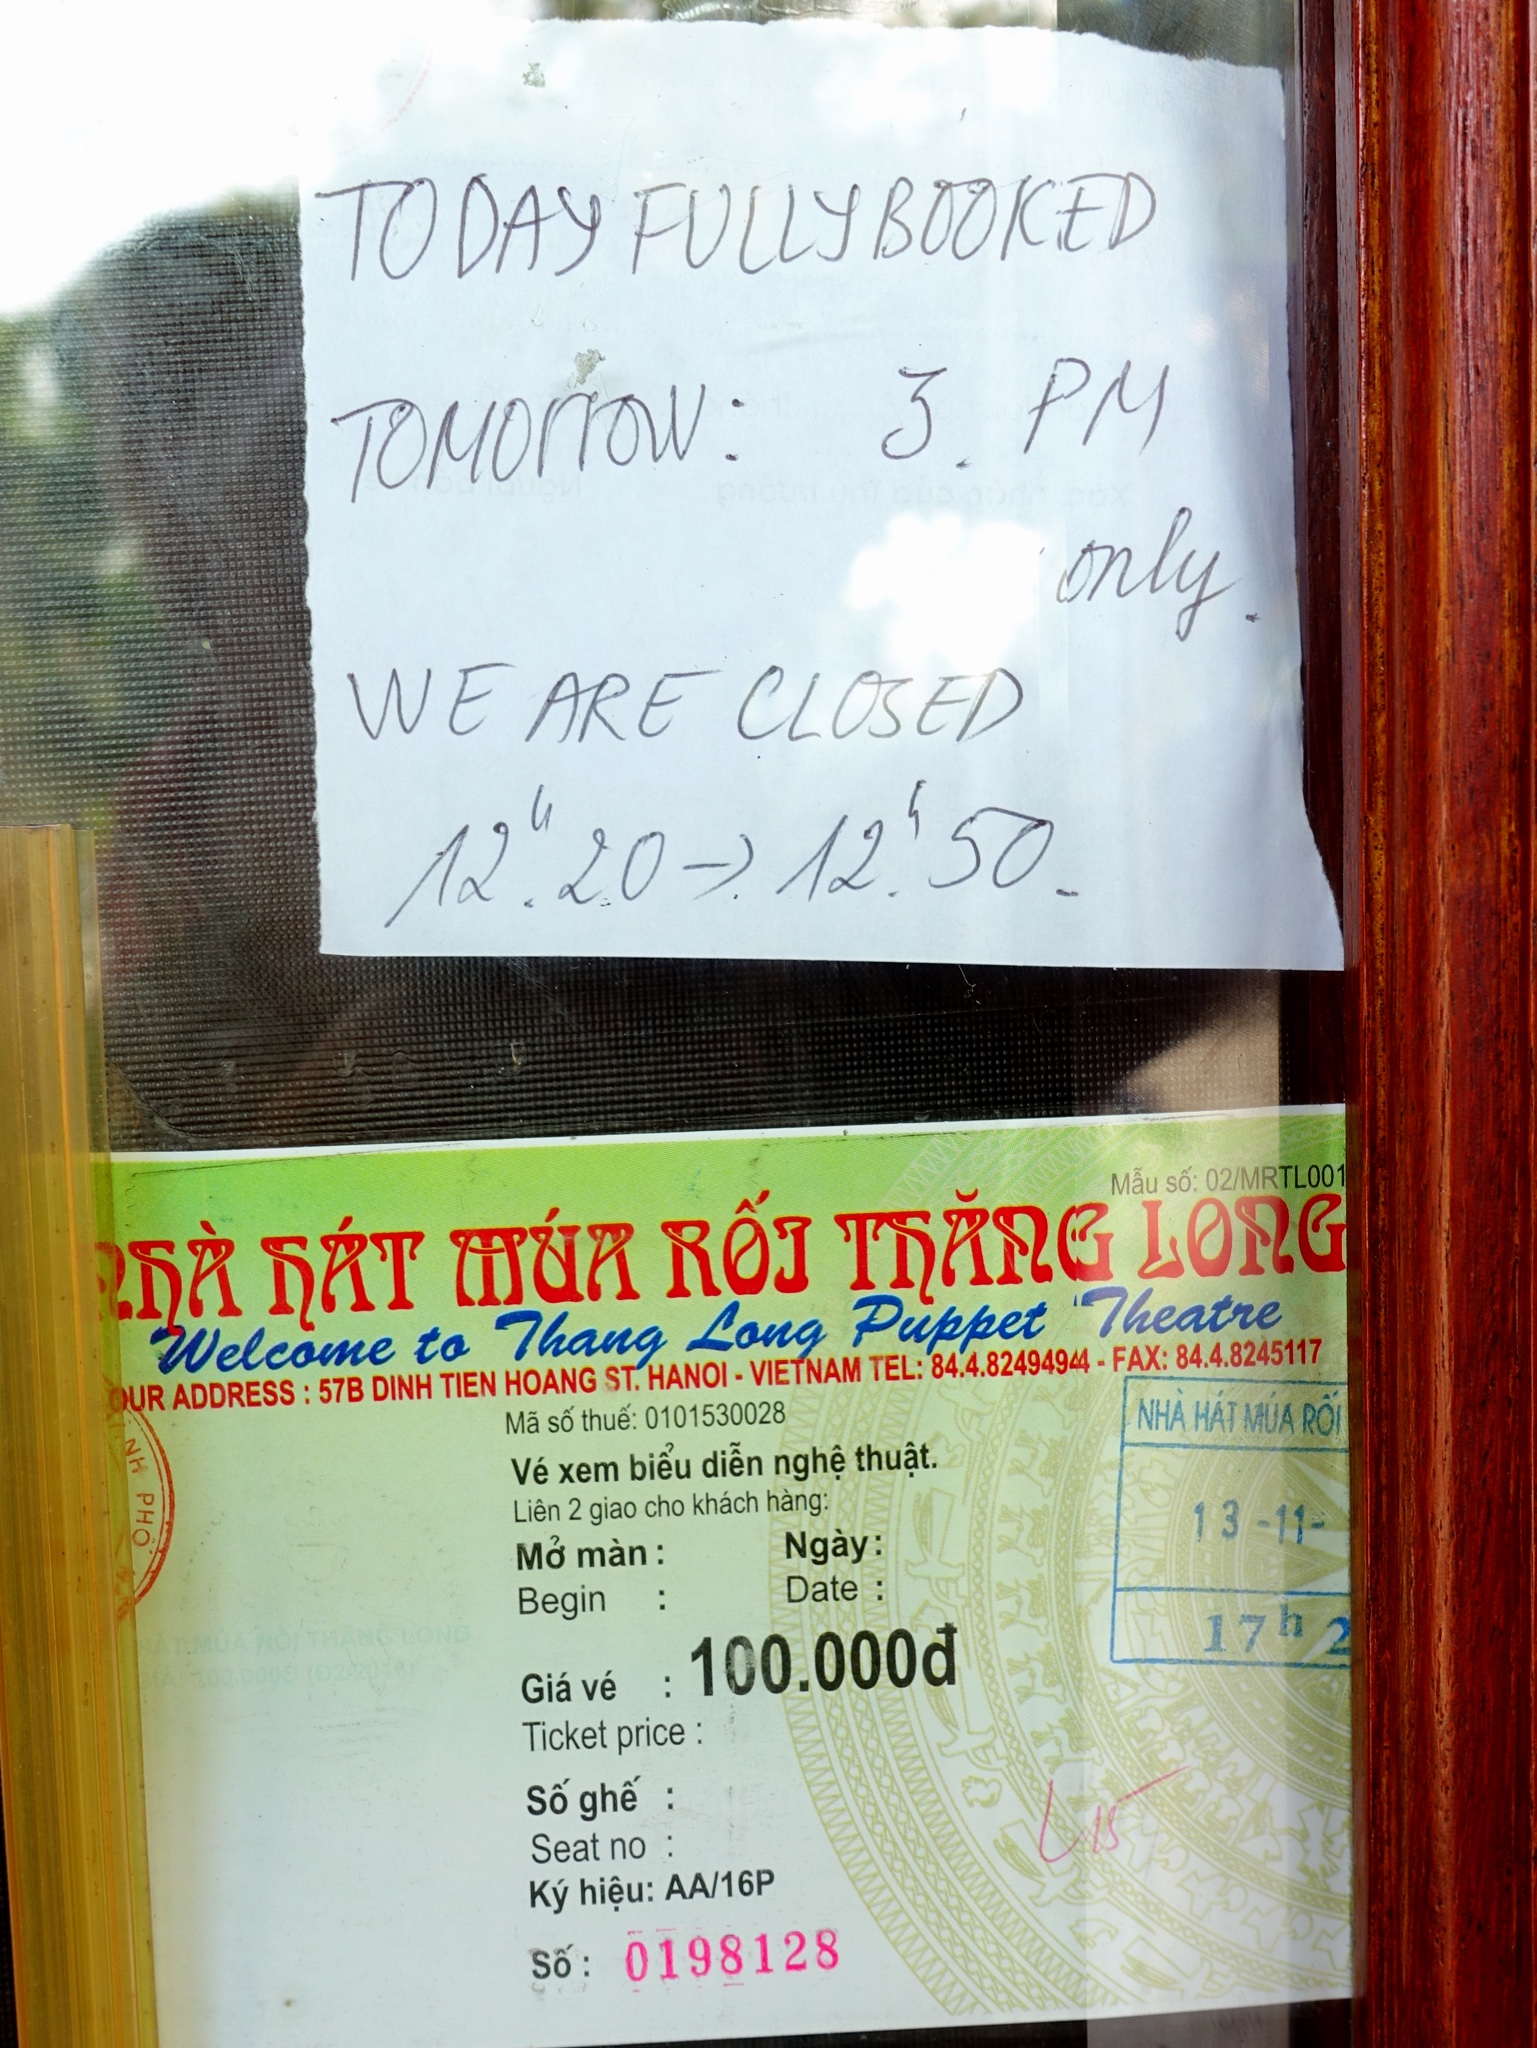 TODAY FULLY BOOKED
TOMORROW: 3. PM
only.
WE ARE CLOSED
12h.20 → 12h.50.
Mẫu số: 02/MRTL001
NHÀ HÁT MÚA RỐI THĂNG LONG
Welcome to Thang Long Puppet Theatre
OUR ADDRESS : 57B DINH TIEN HOANG ST. HANOI - VIETNAM TEL: 84.4.82494944 - FAX: 84.4.8245117
Mã số thuế: 0101530028
NHÀ HÁT MÚA RỐI
Vé xem biểu diễn nghệ thuật.
Liên 2 giao cho khách hàng:
13-11-
Mở màn : Ngày :
Begin : Date :
17h 2
Giá vé : 100.000đ
Ticket price :
Số ghế :
Seat no :
L15
Ký hiệu: AA/16P
Số : 0198128
NH PHỐ